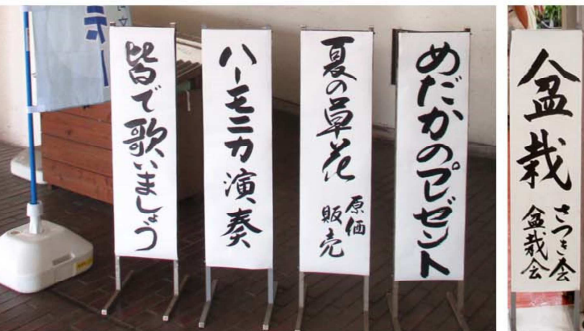 皆で歌いましょう
ハーモニカ演奏
夏の草花
原価
販売
めだかのプレゼント
盆栽
さつき会
盆栽会